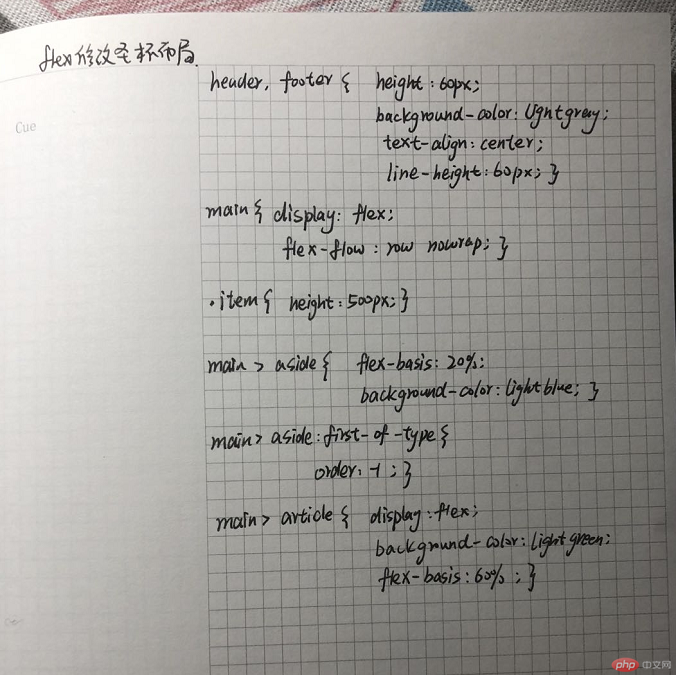 flex修改圣杯布局.
Cue
header, footer { height : 60px;
background-color: lightgray;
text-align: center;
line-height: 60px; }
main { display: flex;
flex-flow : row nowrap; }
.item { height : 500px; }
main > aside { flex-basis: 20%;
background-color: lightblue; }
main > aside:first-of-type {
order: -1 ; }
main > article { display : flex;
background-color: lightgreen;
flex-basis : 60% ; }
php 中文网